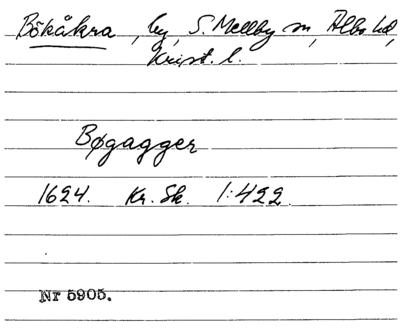 Bökåkra, by, S. Mellby sn, Albo hd,
Krist. l.
Bøgagger
1624. Kr. Sk. 1:422.
Nr 5905.